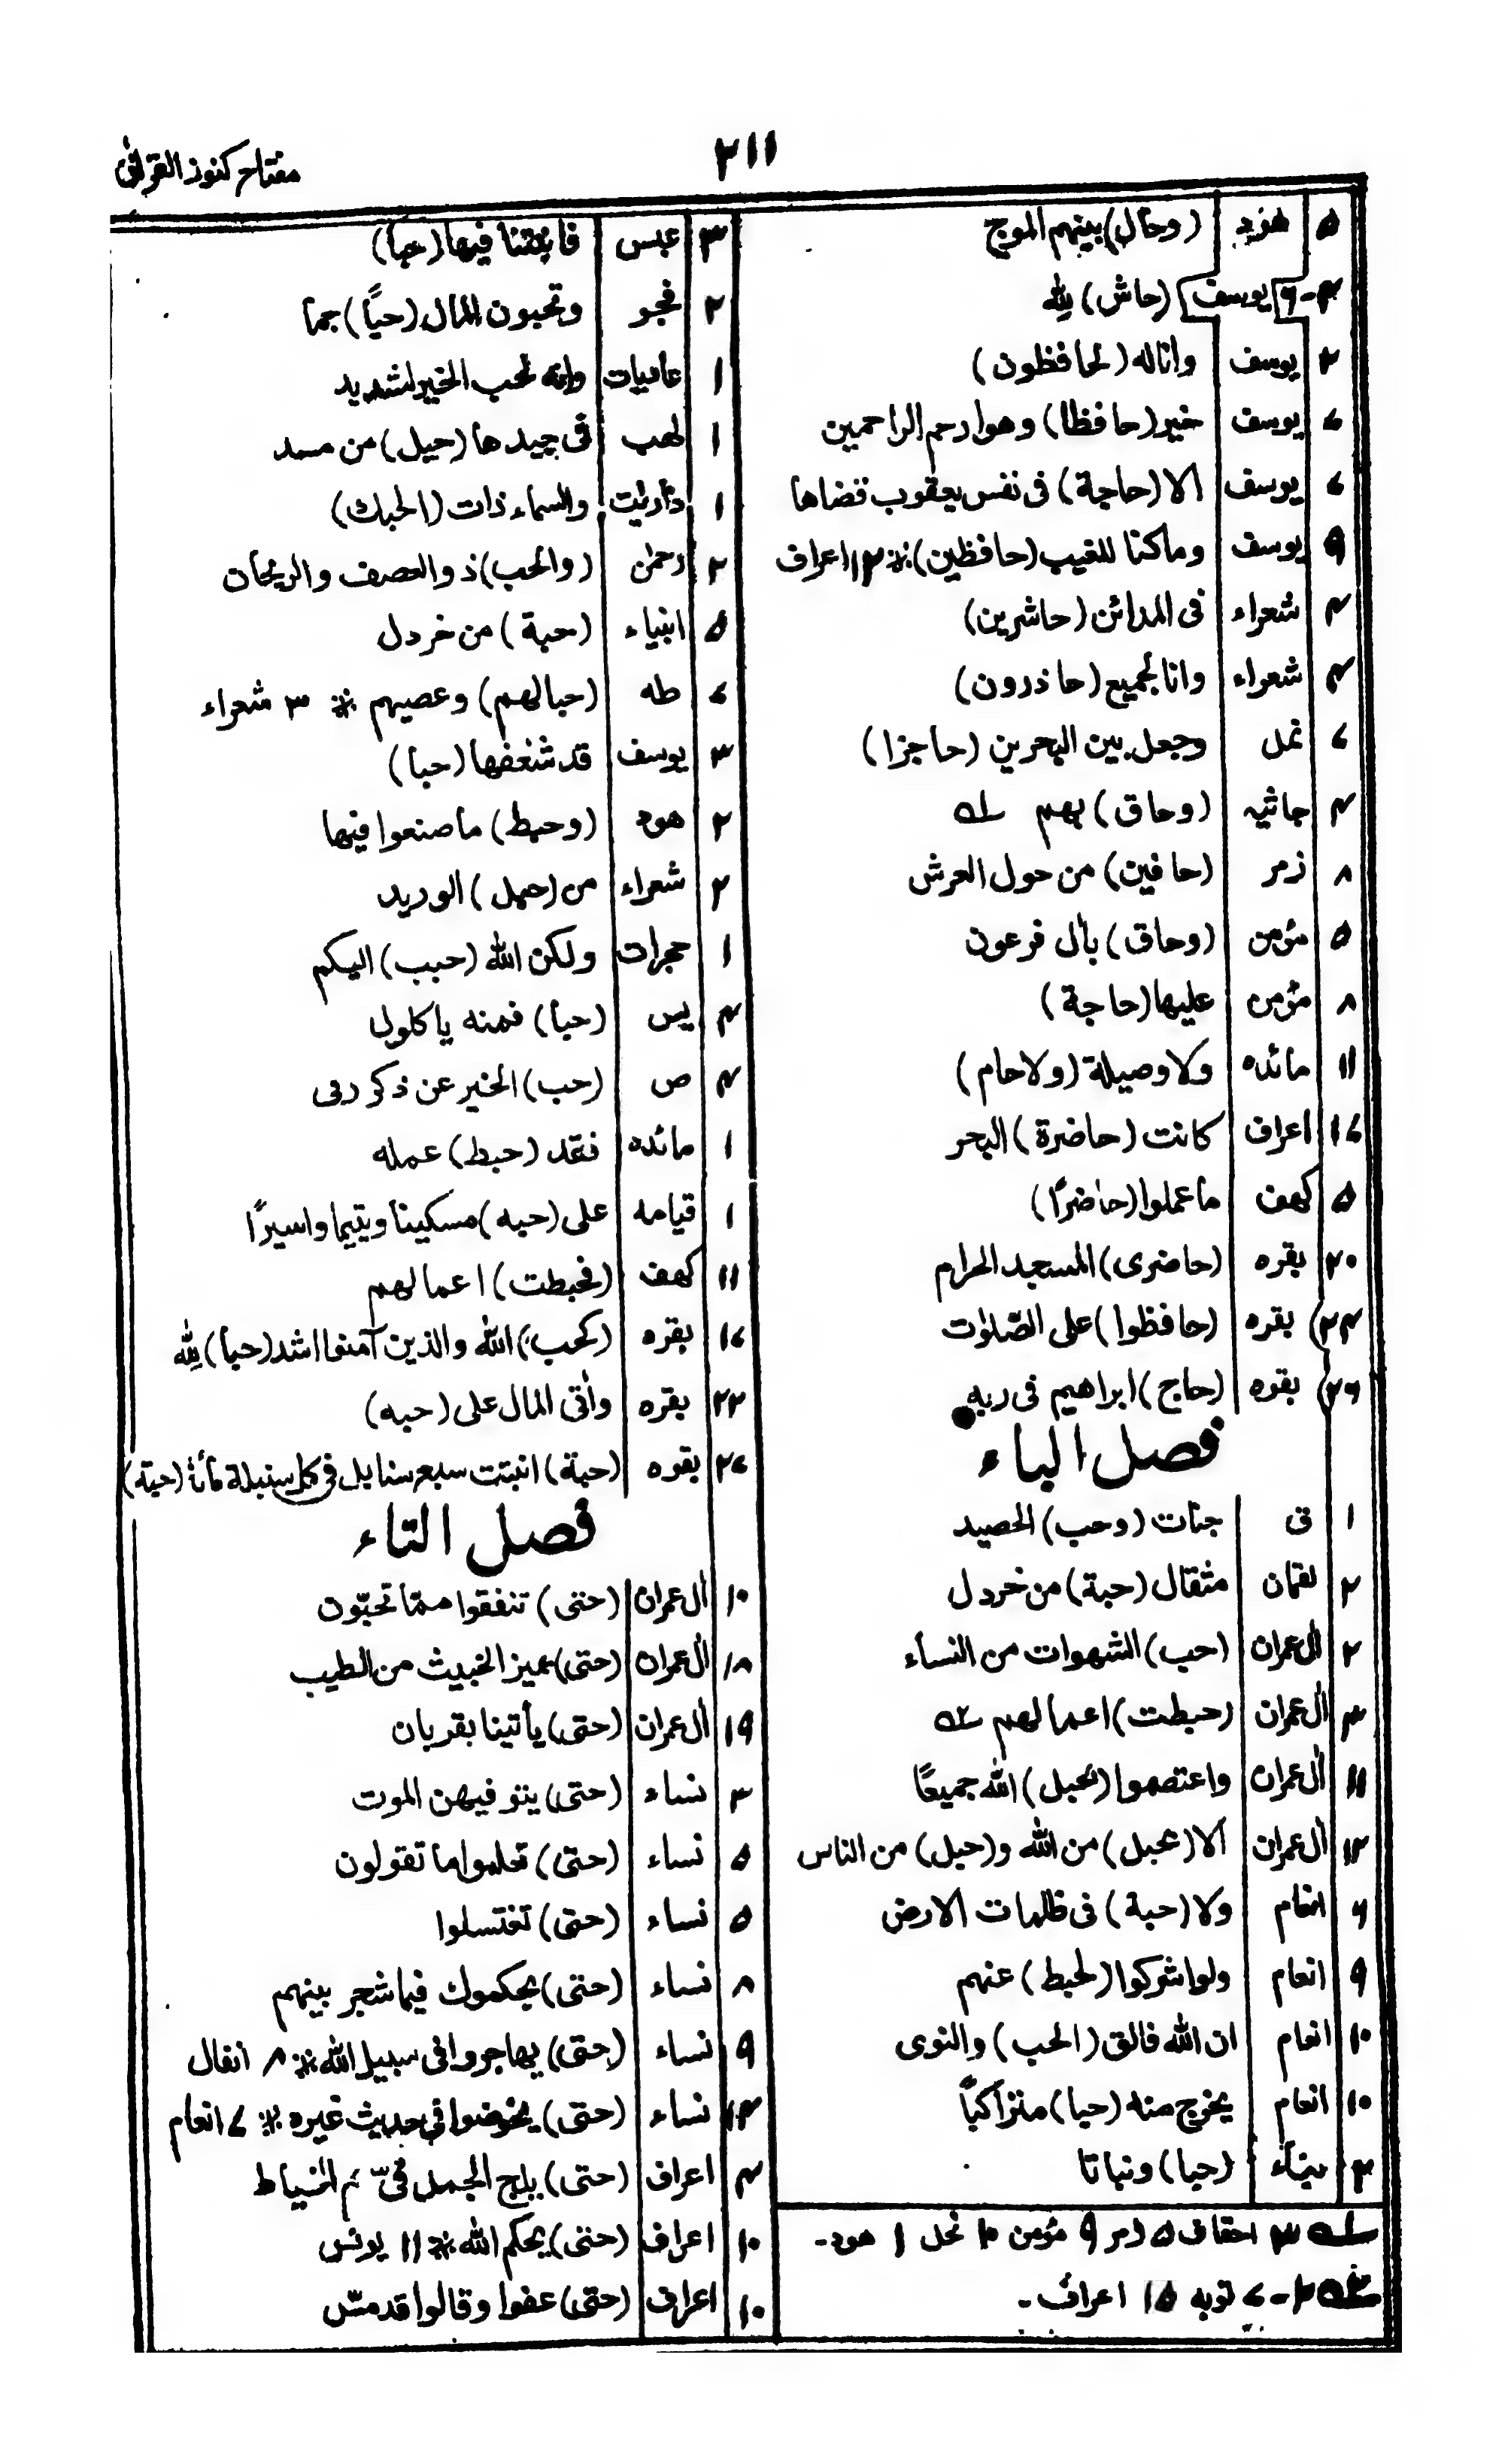 مفتاح كنوز القرآن
٢١١
٥ هود (وحال) بينهم الموج
٤-٦ يوسف (حاش) لله
٢ يوسف وانا له (لحافظون)
٧ يوسف خير (حافظا) وهو ارحم الراحمين
٧ يوسف الا (حاجة) فى نفس يعقوب قضاها
٩ يوسف وماكنا للغيب (حافظين) ※ ١٢ اعراف
٤ شعراء فى المدائن (حاشرين)
٤ شعراء وانا لجميع (حاذرون)
٧ نمل وجعل بين البحرين (حاجزا)
٤ جاثيه (وحاق) بهم ١ه
٨ زمر (حافين) من حول العرش
٥ مؤمن (وحاق) بأل فرعون
٨ مؤمن عليها (حاجة)
١١ مائده ولا وصيلة (ولا حام)
١٧ اعراف كانت (حاضرة) البحر
٥ كهف ما عملوا (حاضرًا)
٢٠ بقره (حاضرى) المسجد الحرام
(٢٤ بقره (حافظوا) على الصّلوٰت
(٢٦ بقره (حاج) ابراهيم فى ربه
فصل الباء
١ ق جنات (وحب) الحصيد
٢ لقمان مثقال (حبة) من خردل
٢ أل عمران (حب) الشهوات من النسأء
٣ أل عمران (حبطت) اعمالهم ٢ه
١١ أل عمران واعتصموا (بحبل) الله جميعًا
١٢ أل عمران الا (بحبل) من الله و(حبل) من الناس
٦ انعام ولا (حبة) فى ظلمات الارض
٩ انعام ولو اشركوا (لحبط) عنهم
١٠ انعام ان الله فالق (الحب) والنوى
١٠ انعام يخرج منه (حبا) متراكبًا
٢ (حبا) ونباتا
١ه ٣ احقاف ٥ زمر ٩ مؤمن ١٠ نحل ١ هود-
٢ه ٢-٧ توبه ١٥ اعراف-
٣ عبس فأنبتنا فيها (حبا)
٢ فجر وتحبون المال (حبًا) جما
١ عاديات وانه لحب الخير لشديد
١ لهب فى جيدها (حبل) من مسد
١ ذأريٰت والسماء ذات (الحبك)
٢ رحمٰن (والحب) ذو العصف والريحان
٥ انبياء (حبة) من خردل
٧ طه (حبالهم) وعصيهم ※ ٣ شعراء
٣ يوسف قد شغفها (حبا)
٢ هود (وحبط) ما صنعوا فيها
٢ شعراء من (حبل) الوريد
١ حجرات ولكن الله (حبب) اليكم
٤ يس (حبا) فمنه ياكلون
٤ ص (حب) الخير عن ذكر ربى
١ مائده فقد (حبط) عمله
١ قيامه على (حبه) مسكينا ويتيما واسيرًا
١١ كهف (فحبطت) اعمالهم
١٧ بقره (كحب) الله والذين آمنوا اشد (حبا) لله
٢٢ بقره وأتى المال على (حبه)
٢٧ بقره (حبة) انبتت سبع سنابل فى كل سنبلة مأئة (حبة)
فصل التاء
١٠ أل عمران (حتى) تنفقوا ممّا تحبّون
١٨ أل عمران (حتى) يميز الخبيث من الطيب
١٩ أل عمران (حتى) يأتينا بقربان
٣ نساء (حتى) يتوفيهن الموت
٥ نساء (حتى) تعلموا ما تقولون
٥ نساء (حتى) تغتسلوا
٨ نساء (حتى) يحكموك فيما شجر بينهم
٩ نساء (حتى) يهاجروا فى سبيل الله ※ ٨ انفال
١٤ نساء (حتى) يخوضوا فى حديث غيره ※ ٧ انعام
٤ اعراف (حتى) يلج الجمل فى سّم الخياط
١٠ اعراف (حتى) يحكم الله ※ ١١ يونس
١٠ اعراف (حتى) عفوا وقالوا قد مسّ